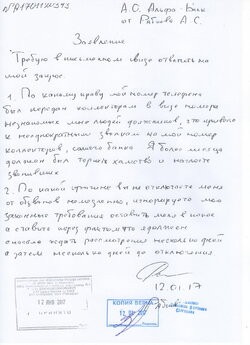 А.О. Альфа-Банк
от Рябова А.С.
Заявление
Требую в письменном виде ответить на
мой запрос.
1. По какому праву мой номер телефона
был передан коллекторам в виде номера
незнакомых мне людей должников, это привело
к неоднократным звонкам на мой номер
коллекторов, самого банка. Я более месяца
должен был терпеть хамство и наглость
звонивших
2. По какой причине вы не отключаете меня
от обзвонов немедленно, игнорируете мои
законные требования оставить меня в покое
а ставите перед фактом, что я должен
сначала ждать рассмотрения несколько дней
а затем несколько дней до отключения
12.01.17
12 ЯНВ 2017
КОПИЯ ВЕРНА
12 01 2017